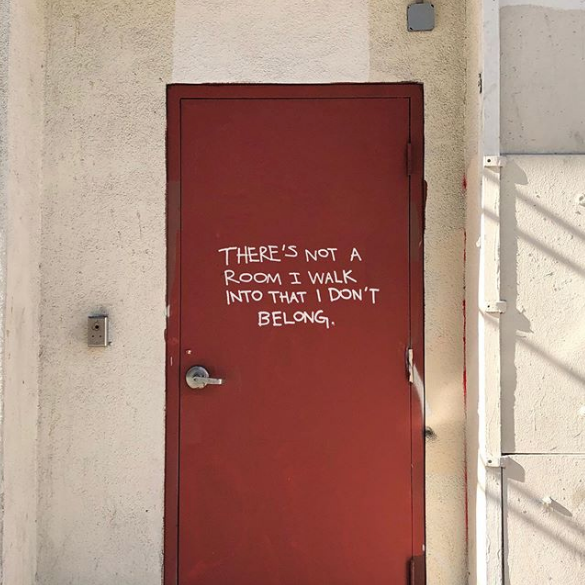 THERE'S NOT A
ROOM I WALK
INTO THAT I DON'T
BELONG.